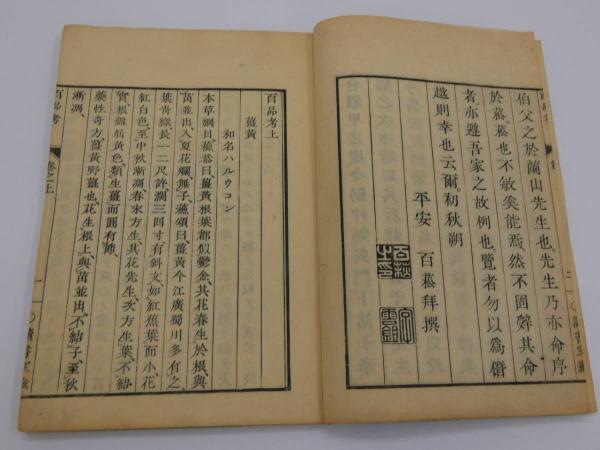 伯父之於蘭山先生也先生乃亦命序
於菘菘也不敏奚能焉然不固辤其命
者亦遵吾家之故例也覽者勿以為僭
越則幸也云爾初秋朔
平安 百菘拜撰
百品考上
薑黃
和名ハルウコン
本草綱目藏恭曰薑黃根葉都似鬱金其花春生於根與
苗並出入夏花爛無子蘓頌曰薑黃今江廣蜀川多有之
葉青綠長一二尺許濶三四寸有斜文如紅蕉葉而小花
紅白色至中秋漸凋春末方生其花先生次方生葉不結
實根盤屈黃色類生薑而圓有節
藥性奇方薑黃野薑也花生根上與苗並出不結子至秋
漸凋
百品考
卷之上
一